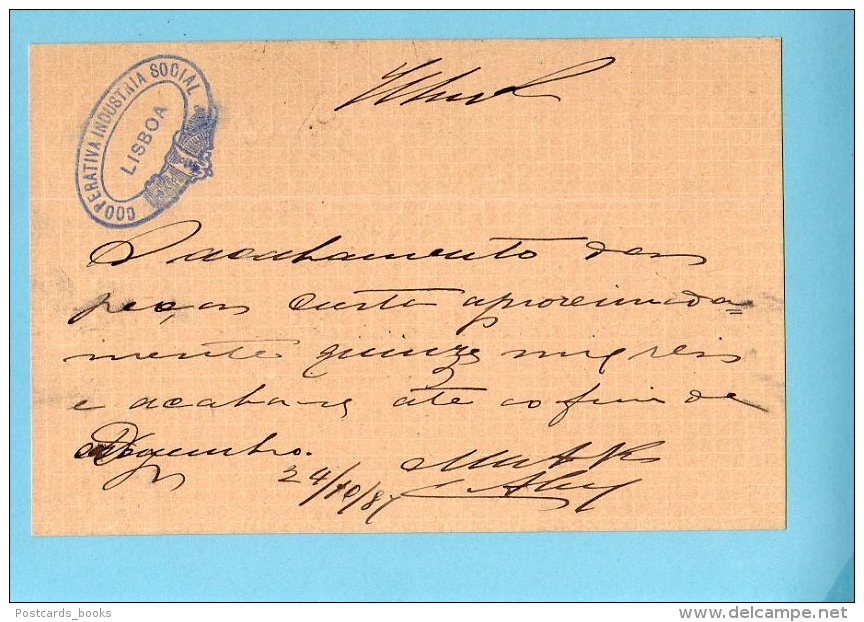 COOPERATIVA INDUSTRIA SOCIAL
LISBOA
O acabamento das
peças custa aproximada=
mente quinze mil reis
e acabar-se até ao fim de
Dezembro.
24/10/87
Postcards_books
www.delcampe.net